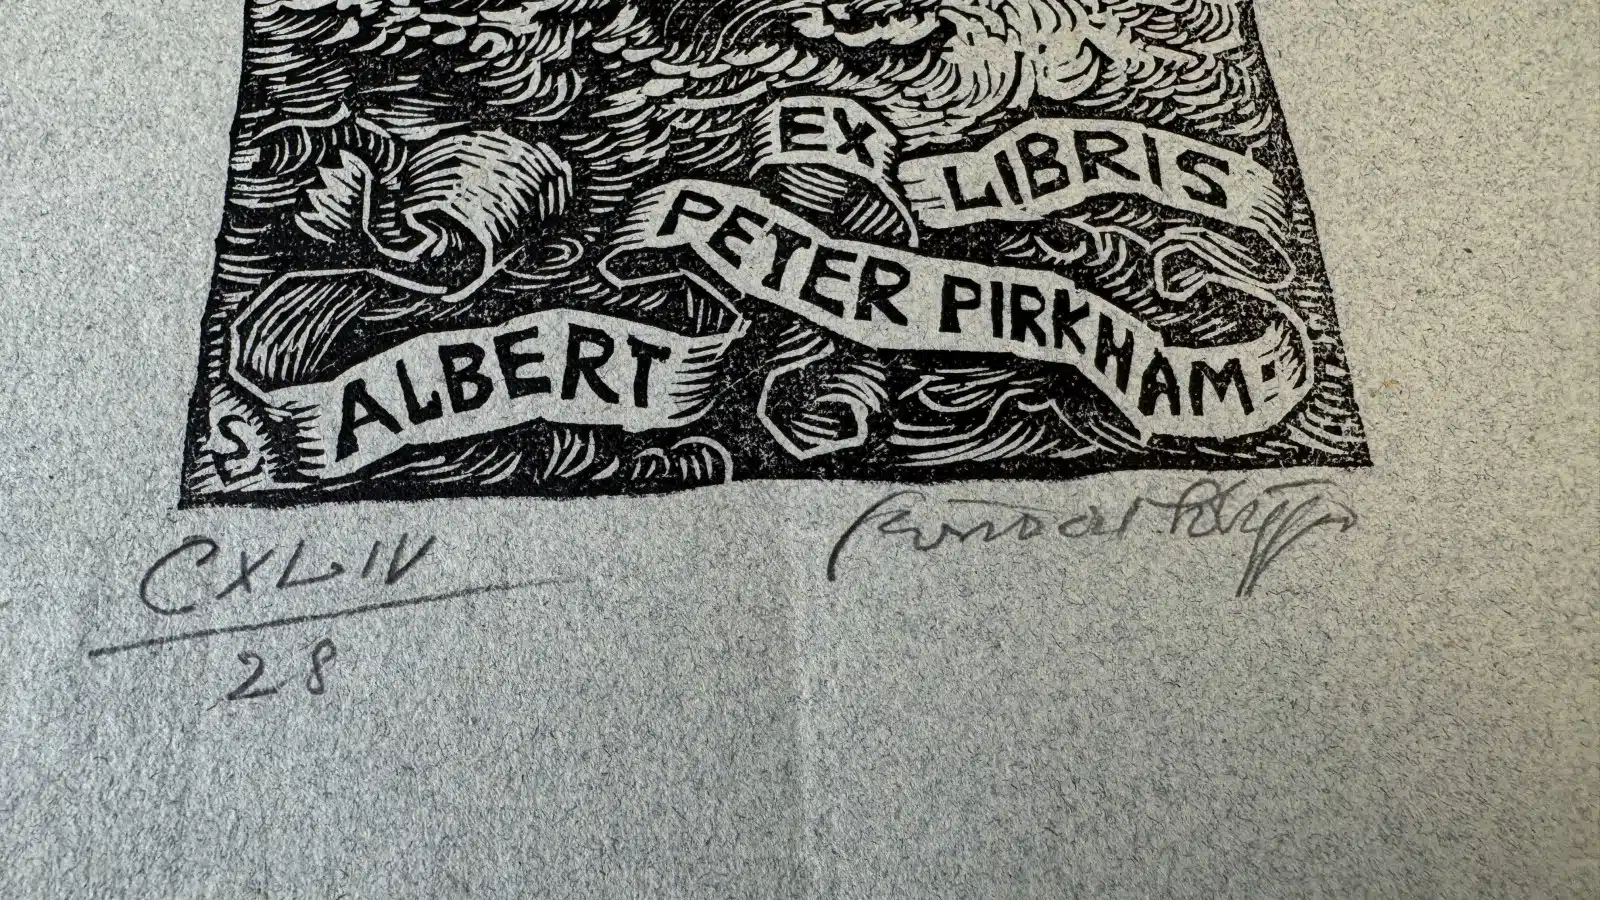 EX LIBRIS
PETER PIRKHAM·
ALBERT
S
CXLIV
28